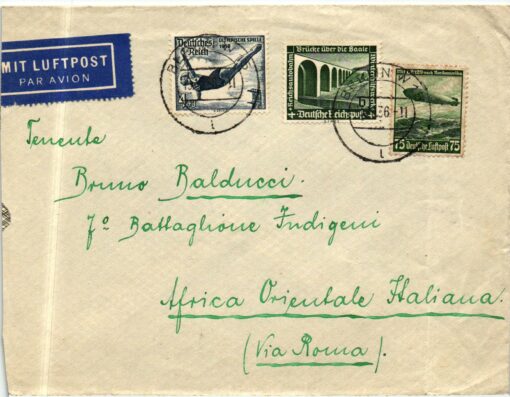 MIT LUFTPOST
PAR AVION
Deutsches Reich
OLYMPISCHE SPIELE
4
Brücke über die Saale
Deutsche Reichspost
4
75 Deutsche Luftpost 75
36-11
Tenente
Bruno Balducci.
7º Battaglione Indigeni
Africa Orientale Italiana.
(Via Roma).